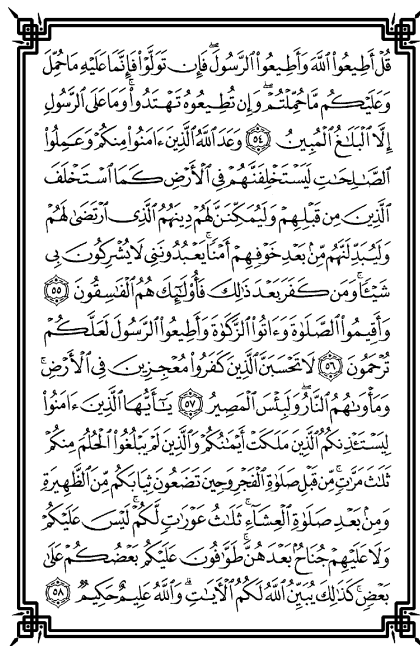 قُلْ أَطِيعُوا۟ ٱللَّهَ وَأَطِيعُوا۟ ٱلرَّسُولَ ۖ فَإِن تَوَلَّوْا۟ فَإِنَّمَا عَلَيْهِ مَا حُمِّلَ
وَعَلَيْكُم مَّا حُمِّلْتُمْ ۖ وَإِن تُطِيعُوهُ تَهْتَدُوا۟ ۚ وَمَا عَلَى ٱلرَّسُولِ
إِلَّا ٱلْبَلَـٰغُ ٱلْمُبِينُ ٥٤ وَعَدَ ٱللَّهُ ٱلَّذِينَ ءَامَنُوا۟ مِنكُمْ وَعَمِلُوا۟
ٱلصَّـٰلِحَـٰتِ لَيَسْتَخْلِفَنَّهُمْ فِى ٱلْأَرْضِ كَمَا ٱسْتَخْلَفَ
ٱلَّذِينَ مِن قَبْلِهِمْ وَلَيُمَكِّنَنَّ لَهُمْ دِينَهُمُ ٱلَّذِى ٱرْتَضَىٰ لَهُمْ
وَلَيُبَدِّلَنَّهُم مِّنۢ بَعْدِ خَوْفِهِمْ أَمْنًا ۚ يَعْبُدُونَنِى لَا يُشْرِكُونَ بِى
شَيْـًٔا ۚ وَمَن كَفَرَ بَعْدَ ذَٰلِكَ فَأُو۟لَـٰٓئِكَ هُمُ ٱلْفَـٰسِقُونَ ٥٥
وَأَقِيمُوا۟ ٱلصَّلَوٰةَ وَءَاتُوا۟ ٱلزَّكَوٰةَ وَأَطِيعُوا۟ ٱلرَّسُولَ لَعَلَّكُمْ
تُرْحَمُونَ ٥٦ لَا تَحْسَبَنَّ ٱلَّذِينَ كَفَرُوا۟ مُعْجِزِينَ فِى ٱلْأَرْضِ ۚ
وَمَأْوَىٰهُمُ ٱلنَّارُ ۖ وَلَبِئْسَ ٱلْمَصِيرُ ٥٧ يَـٰٓأَيُّهَا ٱلَّذِينَ ءَامَنُوا۟
لِيَسْتَـْٔذِنكُمُ ٱلَّذِينَ مَلَكَتْ أَيْمَـٰنُكُمْ وَٱلَّذِينَ لَمْ يَبْلُغُوا۟ ٱلْحُلُمَ مِنكُمْ
ثَلَـٰثَ مَرَّٰتٍ ۚ مِّن قَبْلِ صَلَوٰةِ ٱلْفَجْرِ وَحِينَ تَضَعُونَ ثِيَابَكُم مِّنَ ٱلظَّهِيرَةِ
وَمِنۢ بَعْدِ صَلَوٰةِ ٱلْعِشَآءِ ۚ ثَلَـٰثُ عَوْرَٰتٍ لَّكُمْ ۚ لَيْسَ عَلَيْكُمْ
وَلَا عَلَيْهِمْ جُنَاحٌۢ بَعْدَهُنَّ ۚ طَوَّٰفُونَ عَلَيْكُم بَعْضُكُمْ عَلَىٰ
بَعْضٍ ۚ كَذَٰلِكَ يُبَيِّنُ ٱللَّهُ لَكُمُ ٱلْـَٔايَـٰتِ ۗ وَٱللَّهُ عَلِيمٌ حَكِيمٌ ٥٨